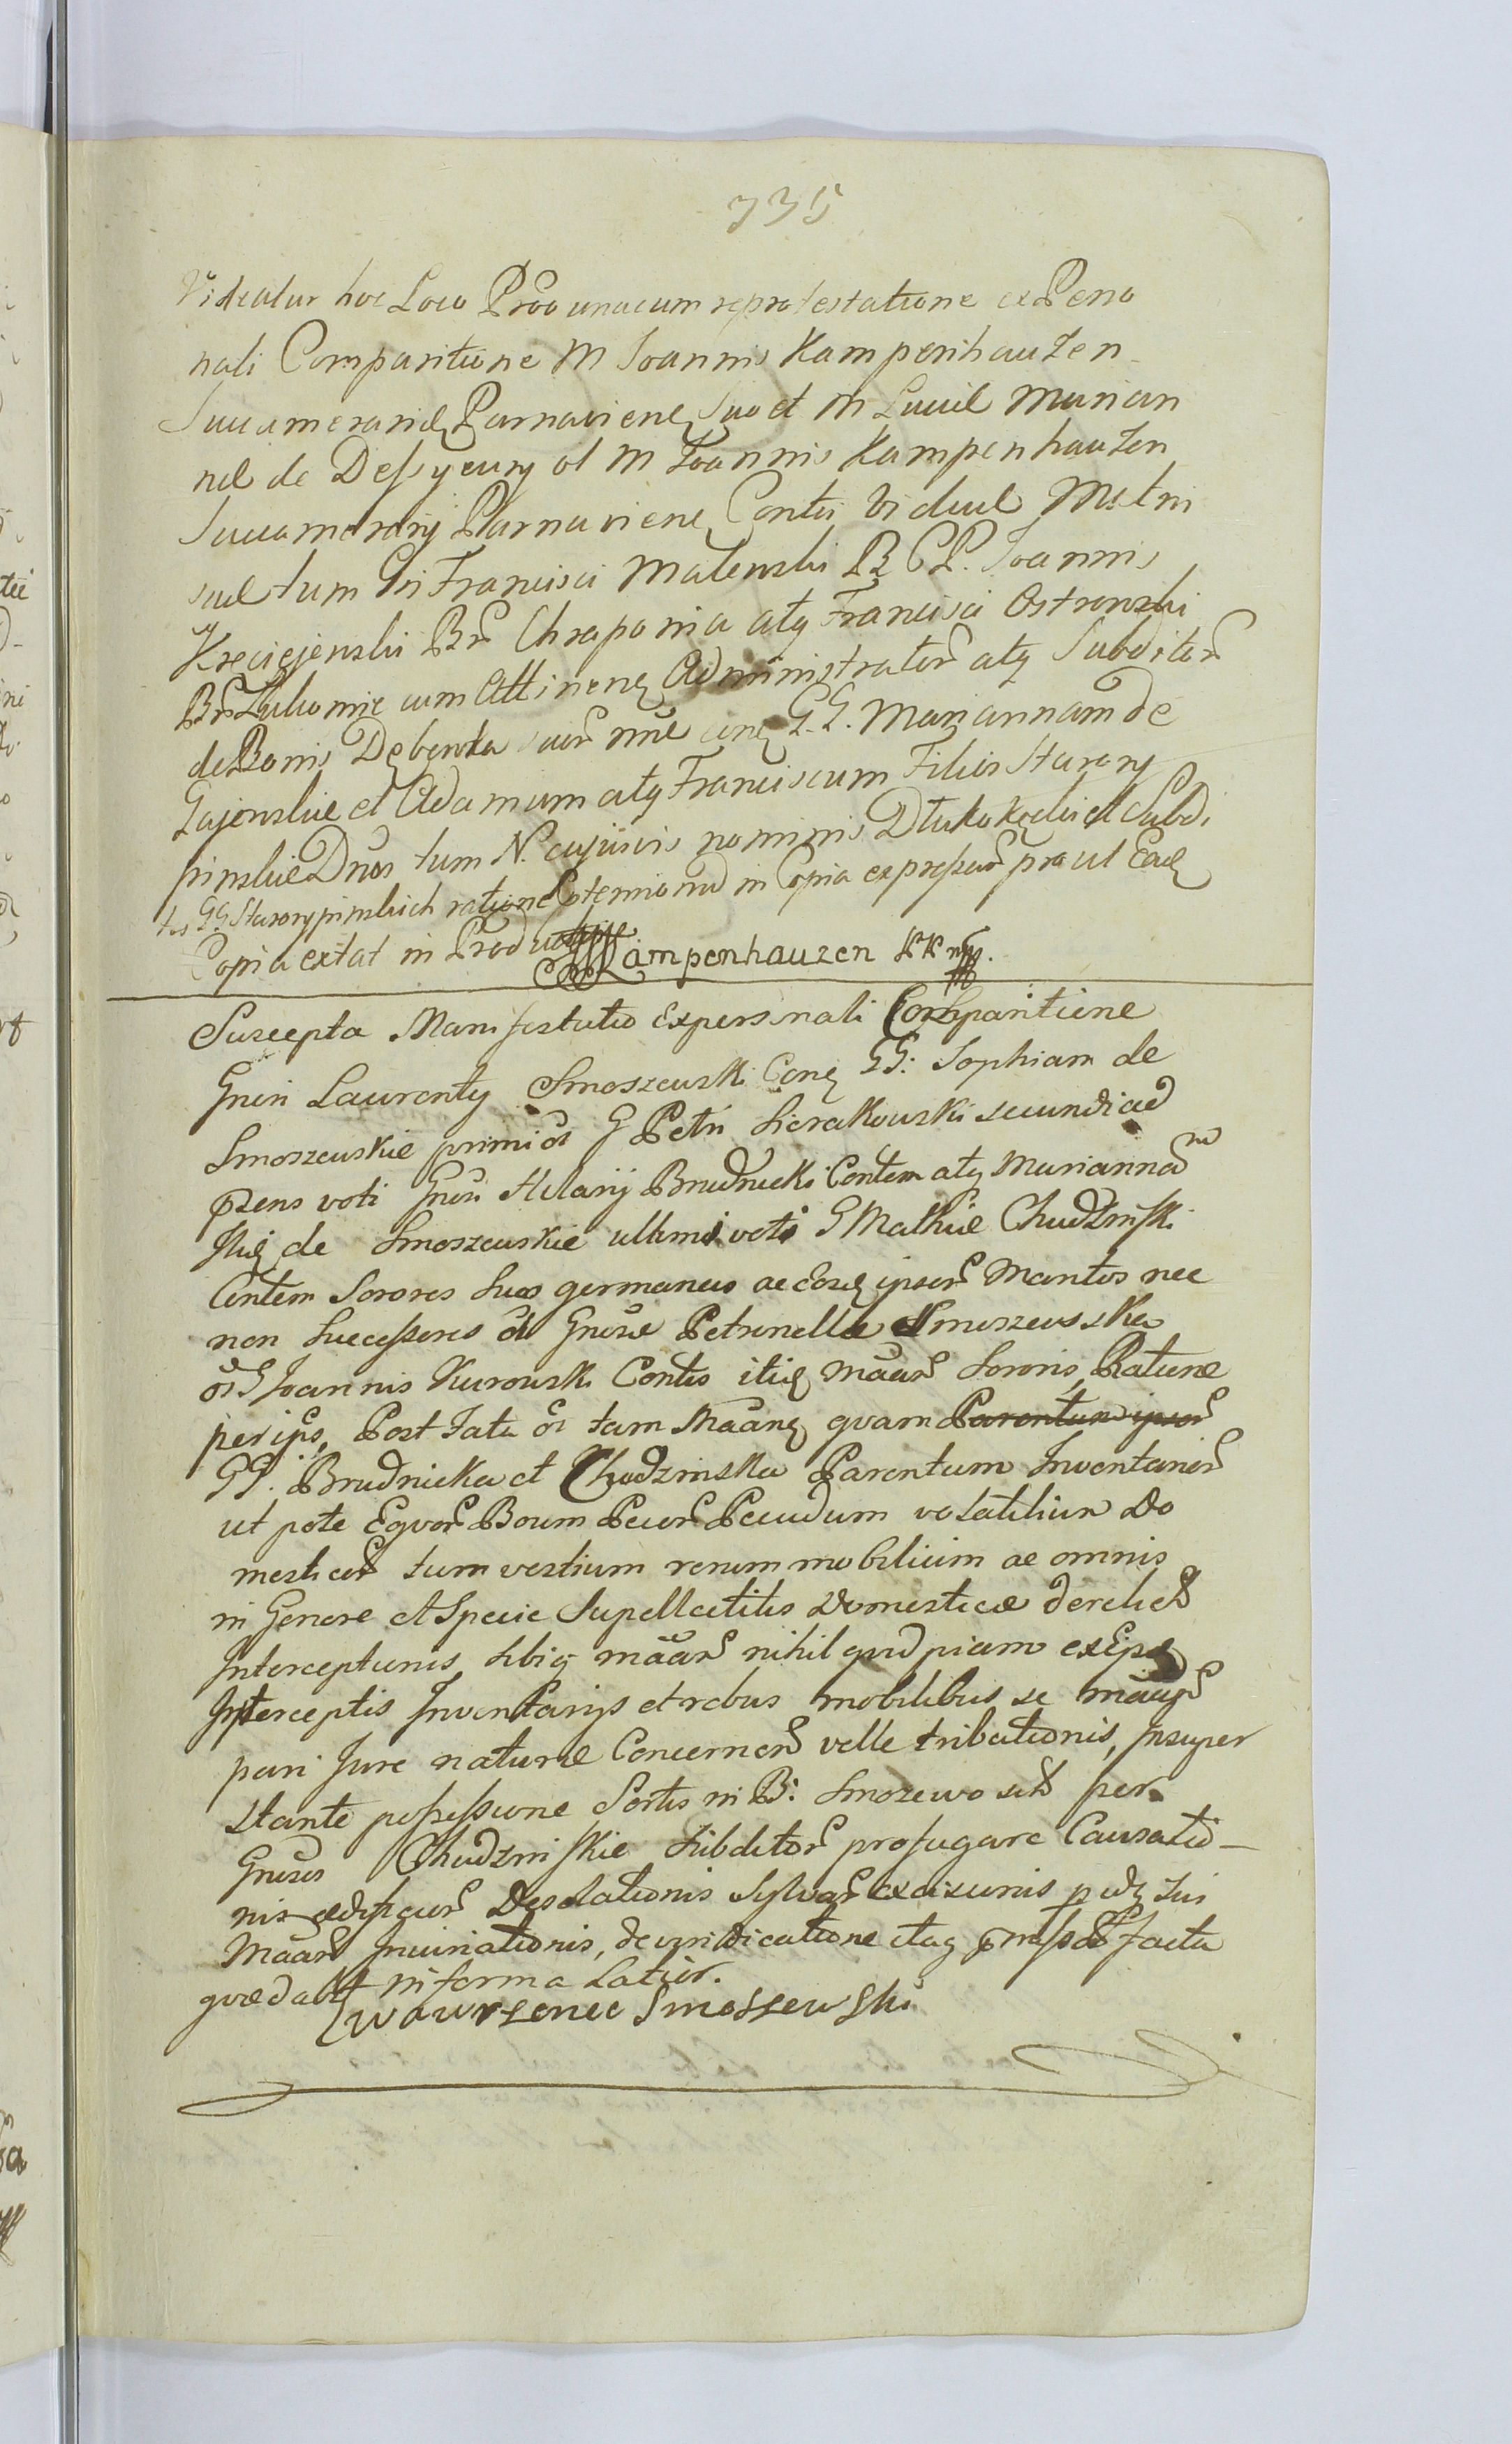 735
Videatur hoc Loco Prõo unacum reprotestatione ex Perso
nali Comparitione M Joannis Kampenhauzen
Succamerarid Parnaviens Suo et M Lucil Marian
nd de Dessyeurÿ ol M Joannis Kampenhauzen
Succamerarij Parnaviens Contis Vidud Matris
sud tum Gsi Francisci Malewski B C P. Joannis
Kręciejewski Br Chraponia atq Francisci Ostrowski
Br Zukomie cum Attinenc Administrator atq Subditor
de Bonis Dębowka suor nne cone G. G. Mariannam de
Gajewskie et Adamum atq Franciscum Filios Starory
pinskie Dnos tum N. cujusvis nominis Dłukokęcki et Subdi
tos GG Starorypinskich ratione Potemiond in Copia expressar prout Ead
Copia extat in Prod
Kampenhauzen PK mp.
Suscepta Manifestatio Expersonali Comparitione
Gnisi Laurenty Smoszewski Cone GG: Sophiam de
Smoszewskie primi ol G Petri Sierakowski secundi ad
przens voti Gnisi Hilarij Brudnicki Contem atq Mariannam
Itid de Smoszewskie ultimi voti G Mathie Chudzinski
Contem Sorores Suas germanas ac eosq ipsor Maritos nec
non Successores ol Gnisæ Petronellæ Smoszewska
ol G Joannis Kurowski Contis itid Mãar Sororis, Ratione
per ips, Post Fata ol tam Mãand qvam Parentum ipsor
GG. Brudnicka et Chudzinska Parentum Inventarior
ut pote Eqvor Boum Pecor Pecudum volatilium Do
mesticor tum vestium rerum mobilium ac omnis
in Genere et Specie Supellectilis Domesticæ derelict
Interceptionis, sibiq mãar nihil qvidpiam ex Eips
Interceptis Inventarijs et rebus mobilibus se mãar
pari Jure naturæ Concernen velle tribationis, Insuper
stante possessione Sortis in B: Smozewo sit per
Gnisos Chudzinskie Subditor profugare Causatio-
nis ædificior Desolationis Sylvar excisionis p sui
Mãar Injuriationis, de vindicatione itaq præmissor facta
qvædabt in forma Latior.
Wawrzeniec Smoszewski